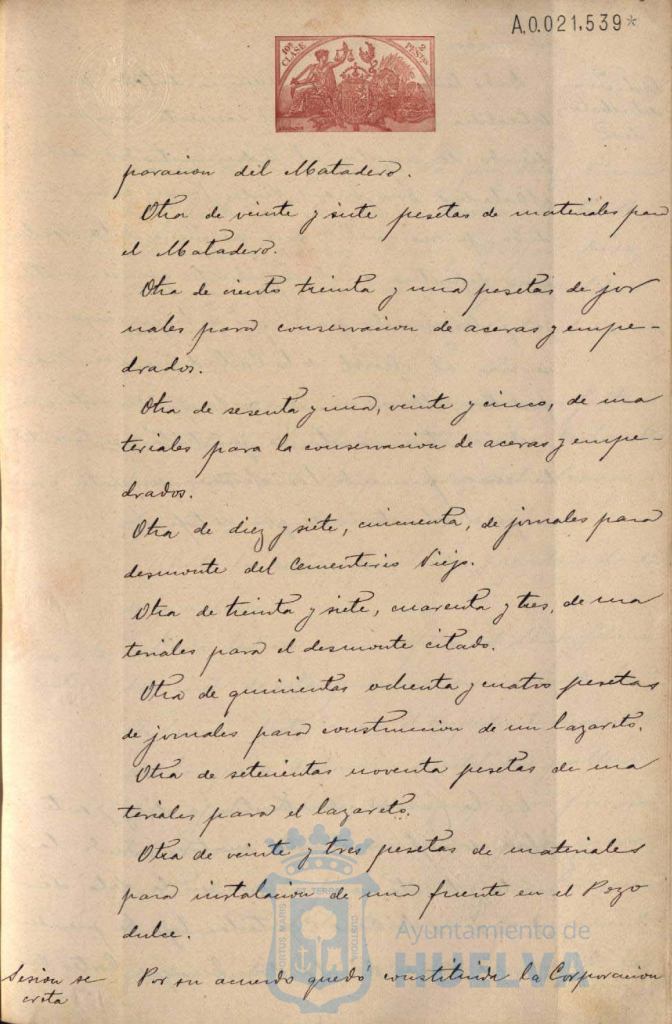 A.0.021.539*
10ª CLASE 2 PESETAS
paracion del Matadero.
Otra de veinte y siete pesetas de materiales para
el Matadero.
Otra de ciento treinta y una pesetas de jor
nales para conservacion de aceras y empe-
drados.
Otra de sesenta y una, veinte y cinco, de ma
teriales para la conservacion de aceras y empe-
drados.
Otra de diez y siete, cincuenta, de jornales para
desmonte del Cementerio Viejo.
Otra de treinta y siete, cuarenta y tres, de ma
teriales para el desmonte citado.
Otra de quinientas ochenta y cuatro pesetas
de jornales para construccion de un lazareto.
Otra de setecientas noventa pesetas de ma
teriales para el lazareto.
Otra de veinte y tres pesetas de materiales
para instalacion de una fuente en el Pozo
dulce.
Sesion se
creta
Por su acuerdo quedó constituida la Corporacion
PORTUS MARIS ET TERRAE CUSTODIA
Ayuntamiento de
HUELVA